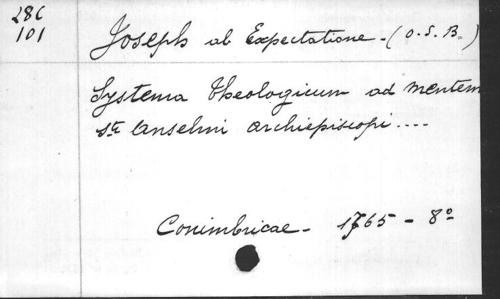 286
101
Joseph ab Expectatione - (O. S. B.)
Systema theologicum ad mentem
Ste Anselmi archiepiscopi ....
Conimbricae - 1765 - 8º